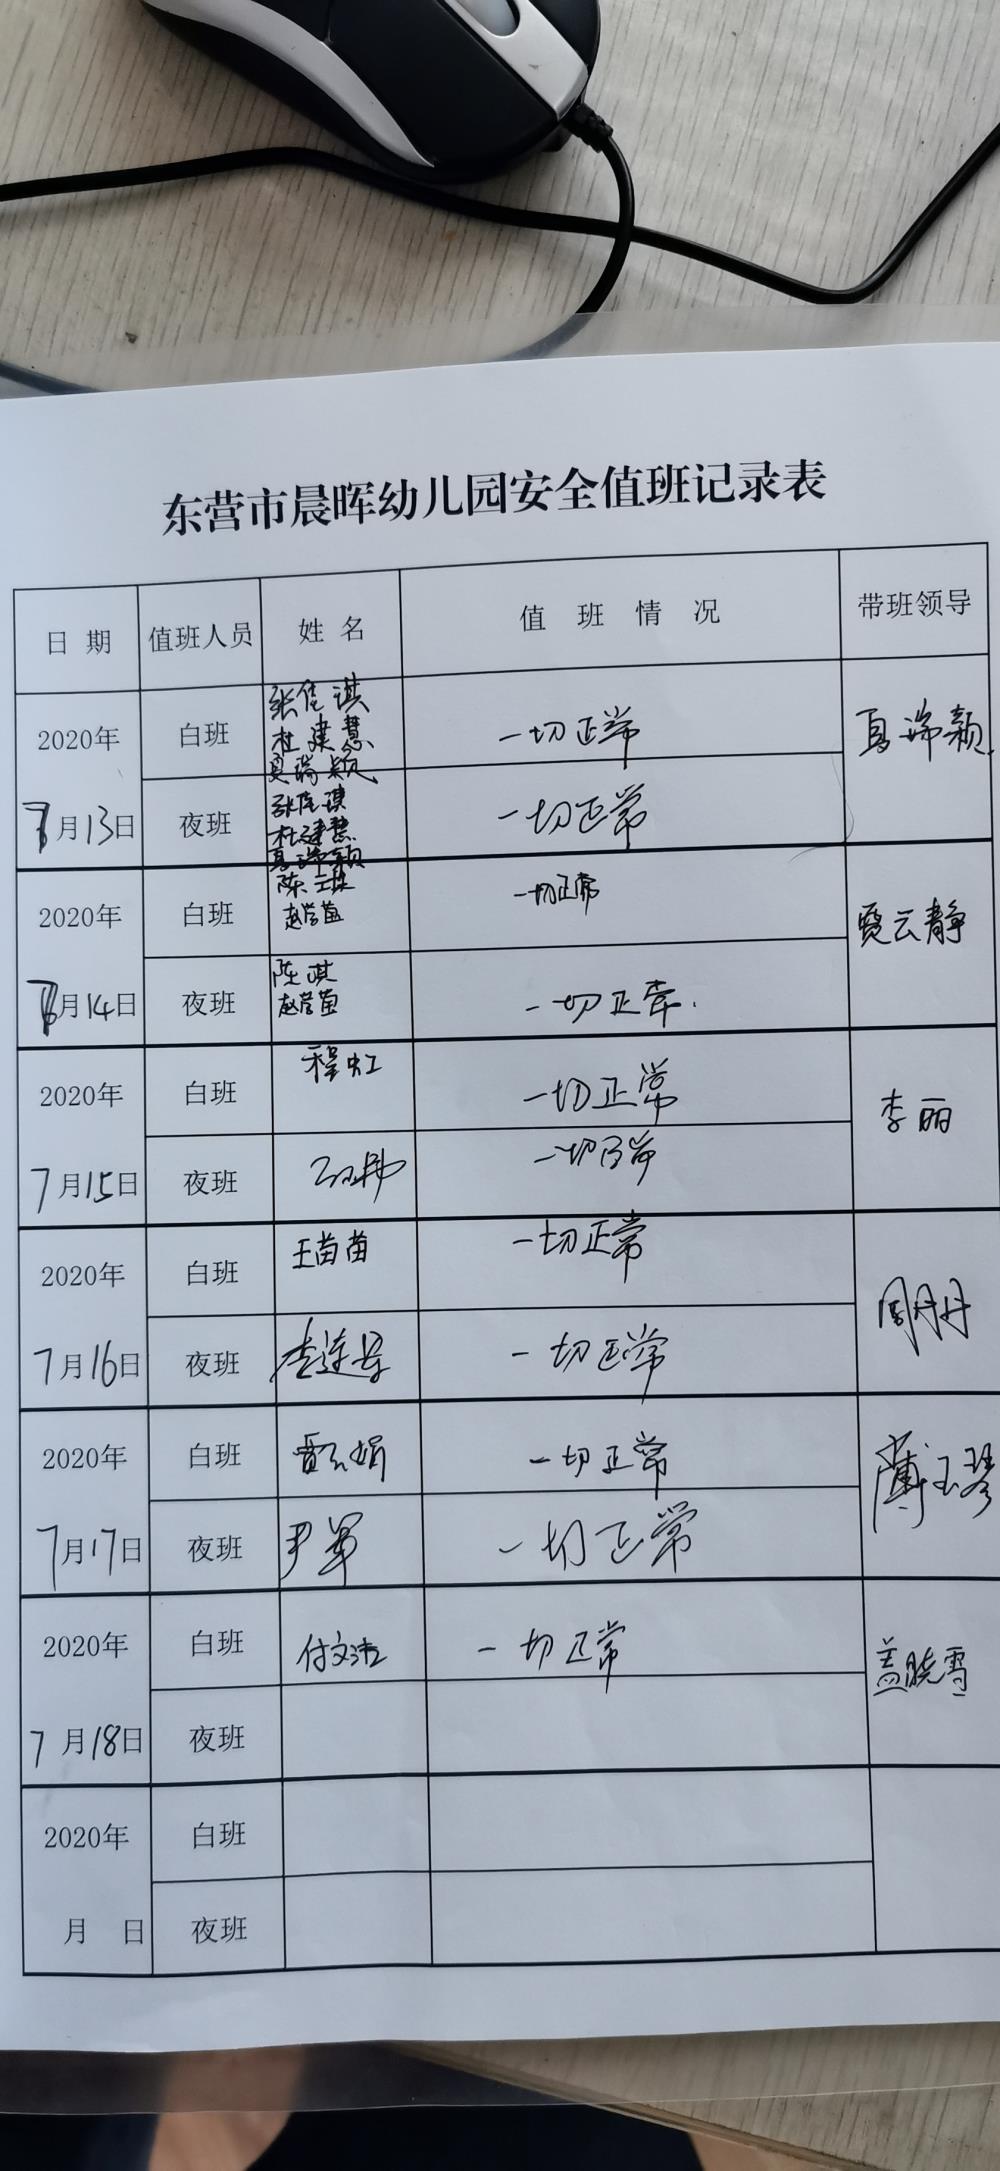 东营市晨晖幼儿园安全值班记录表
日期 值班人员 姓名 值班情况 带班领导
2020年 白班 张佳淇 一切正常 夏瑞颖
杜建慧
夏瑞颖
7月13日 夜班 张佳琪 一切正常
杜建慧
夏瑞颖
2020年 白班 陈 一切正常 云静
赵营苗
7月14日 夜班 陈琪 一切正常.
赵营苗
2020年 白班 程虹 一切正常 李丽
7月15日 夜班 一切正常
2020年 白班 王苗苗 一切正常 周丹丹
7月16日 夜班 李莲 一切正常
2020年 白班 贾云娟 一切正常 薄玉琴
7月17日 夜班 尹军 一切正常
2020年 白班 付文洁 一切正常 盖晓雪
7月18日 夜班
2020年 白班
月 日 夜班